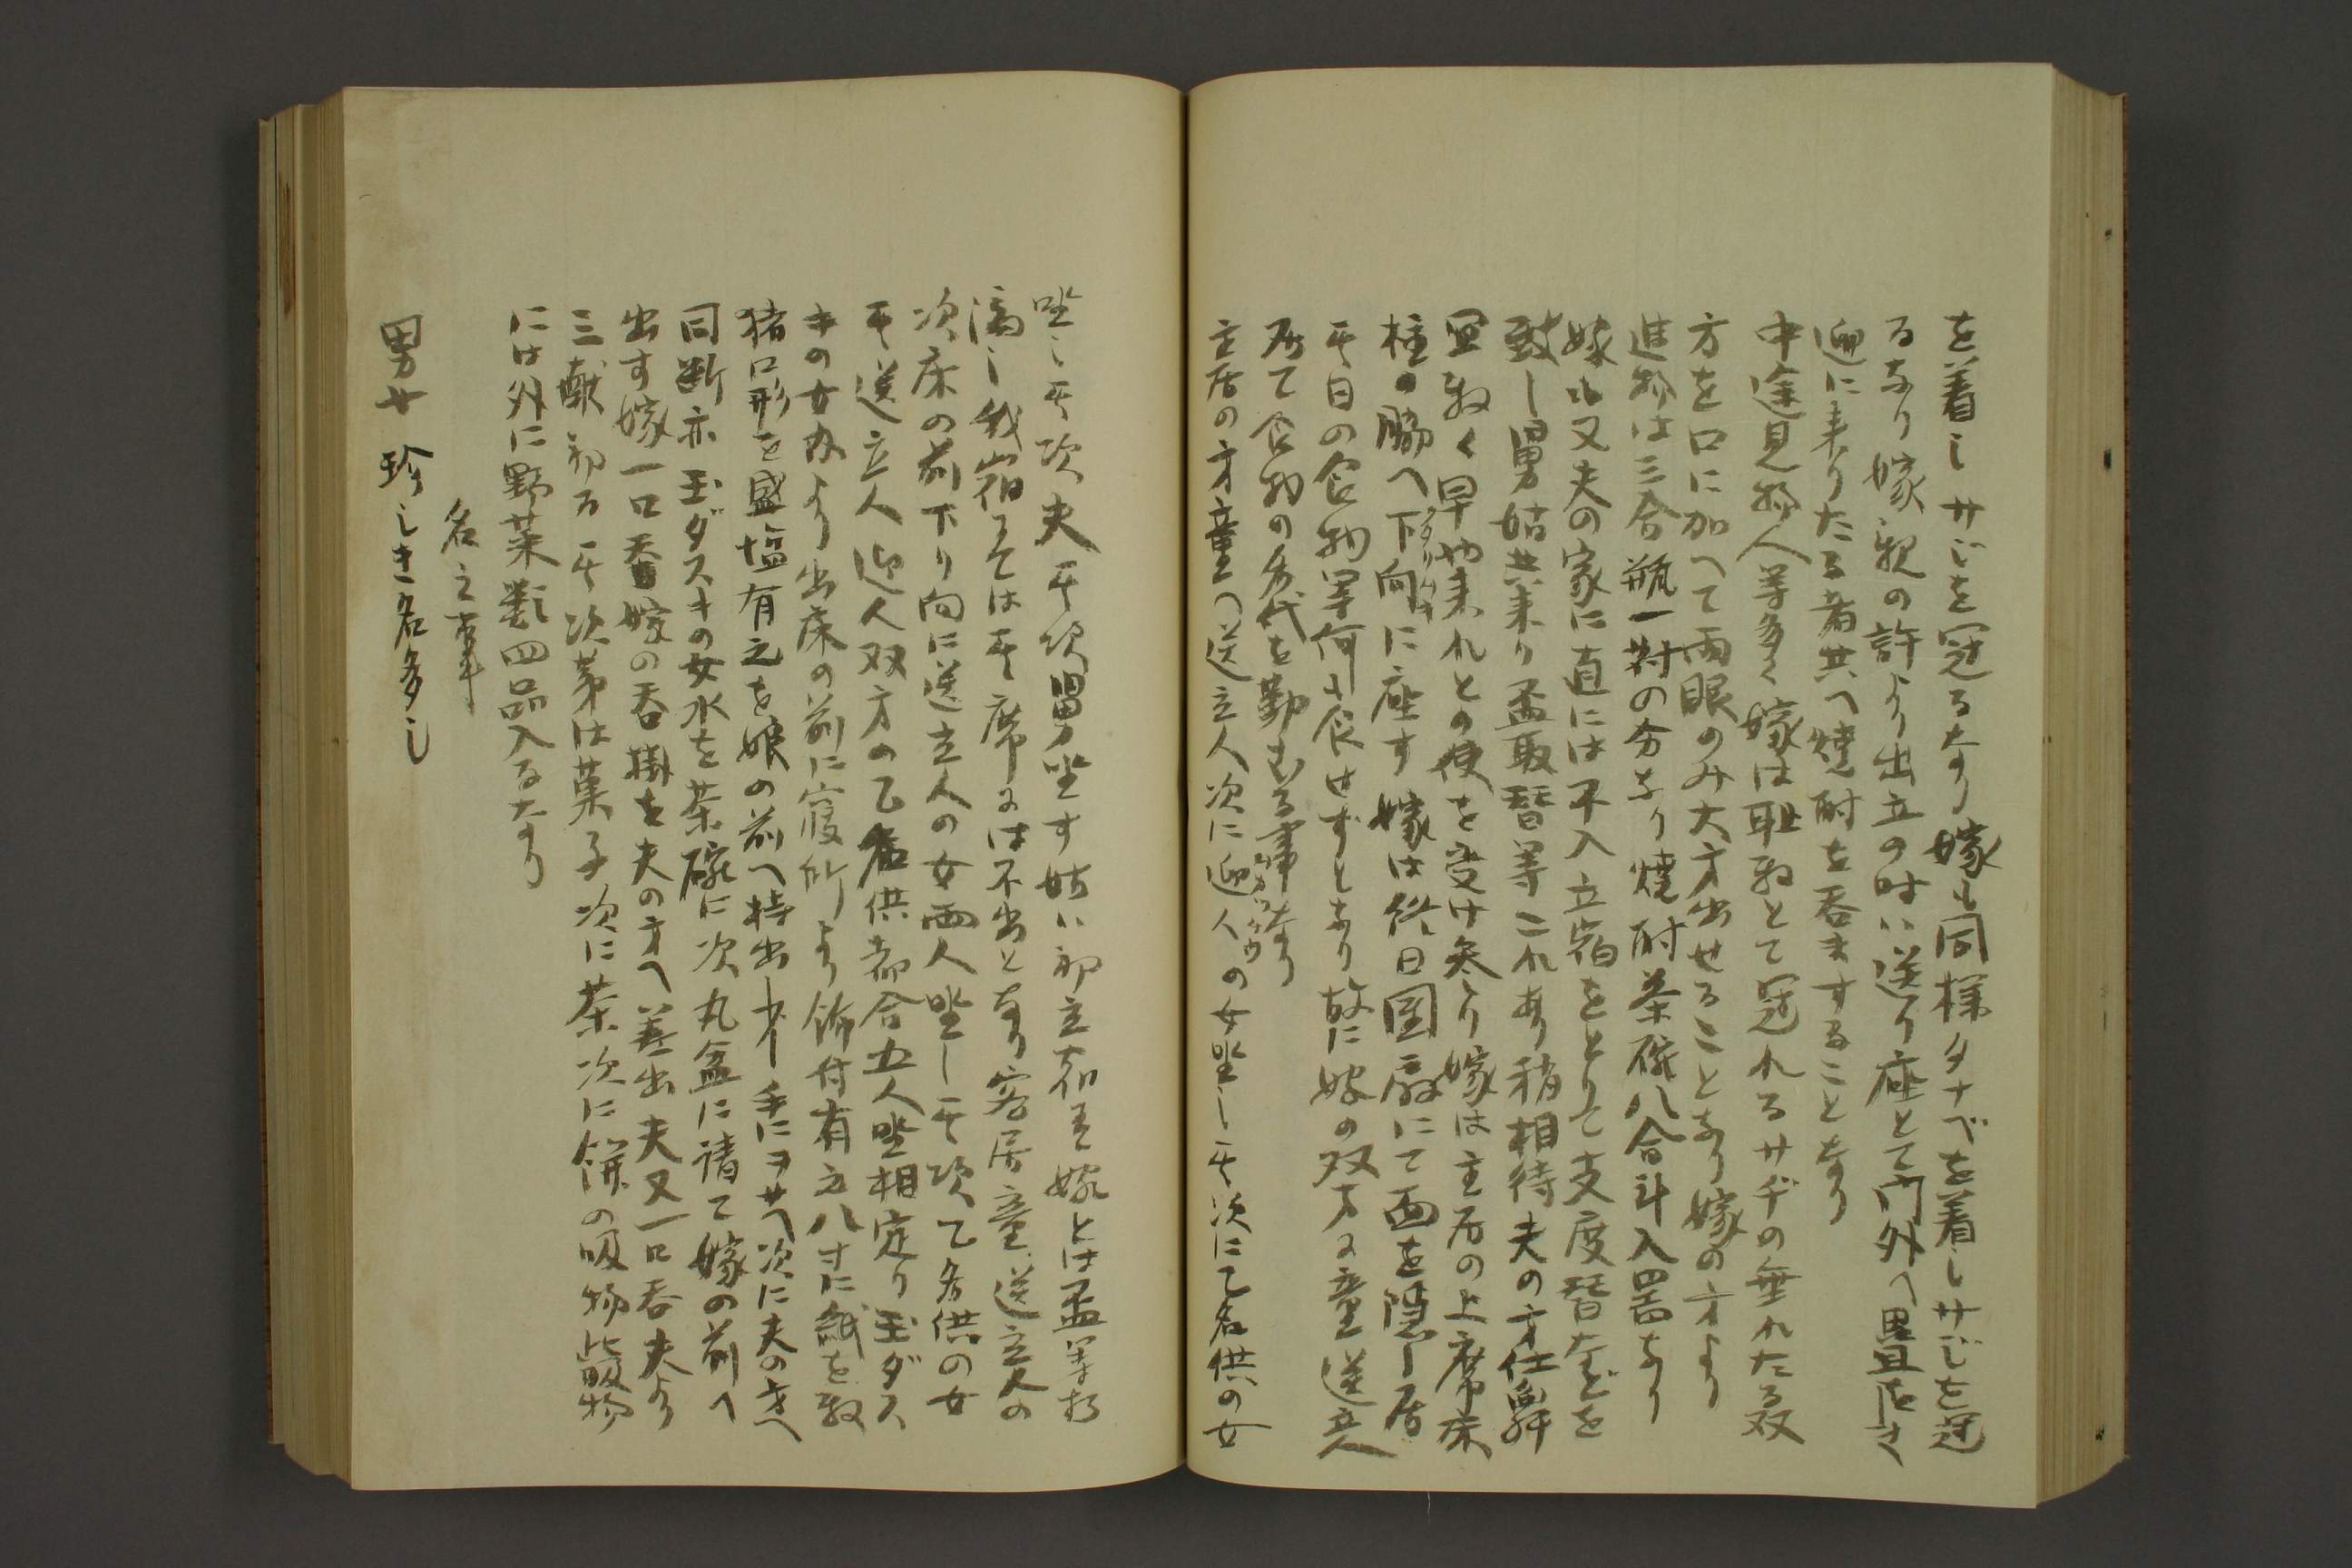 を着しサジを冠るなり嫁も同様タナベを着しサジを冠
るなり嫁親の許より出立の時は送り座とて門外へ畳店き
迎に来りたる者共へ焼酎を呑ますることなり
中途見物人等多く嫁は耻敷とて冠れるサヂの垂れたる双
方を口に加へて両眼のみ大方出せることなり嫁の方より
進物は三合瓶一対の分なり焼酎茶碗八合斗入器なり
嫁も又夫の家に直には不入立宿をとりて支度替などを
致し舅姑共来り盃取替等これあり稍相待夫の方仕舞
宜敷く早や来れとの使を受け参り嫁は主居の上席床
柱の脇へ下向に座す嫁は終日団扇にて面を隠し居
其日の食物等何も食せずとあり故に嫁の双方に童送立人
居て食物の名代を勤むる事なり
主居の方童へ送立人次に迎人の女坐し其次に乙名供の女
坐し其次夫其次舅坐す姑は初立宿にて嫁とは盃等相
済し我宿にては其席には不出となり客居童送立人の
次床の前下り向に送立人の女両人坐し其次乙名供の女
其送立人迎人双方の乙名供都合五人坐相定り玉ダス
キの女房より出床の前に寝所より飾付有之八寸に紙を敷
猪口形を盛塩有之を娘の前へ持出し手にヲサヘ次に夫の方へ
同断亦玉ダスキの女水を茶碗に次丸盆に請て嫁の前へ
出す嫁一口呑嫁の呑掛を夫の方へ差出夫又一口呑夫より
三献初る其次第は菓子次に茶次に餅の吸物此吸物
には外に野菜類四品入るなり
名之事
男女珍しき名多し